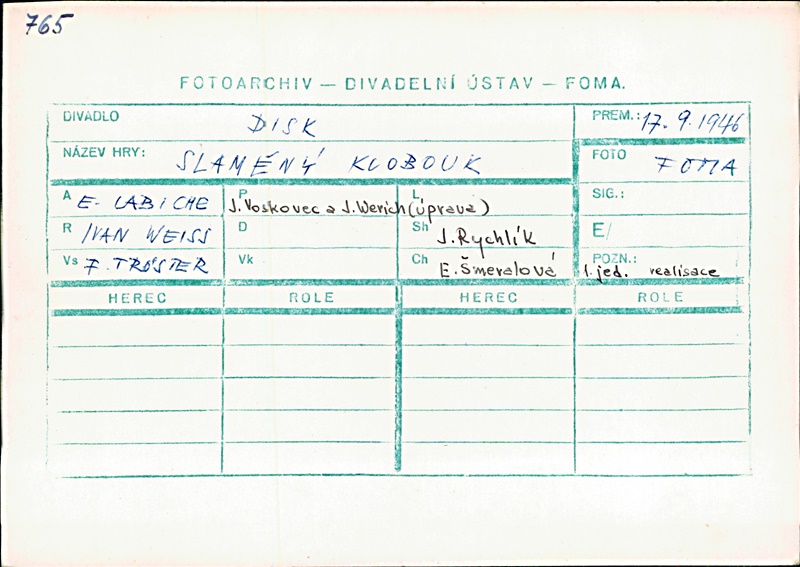 765
FOTOARCHIV — DIVADELNÍ ÚSTAV — FOMA.
DIVADLO DISK PREM.: 17. 9. 1946
NÁZEV HRY: SLAMĚNÝ KLOBOUK FOTO FOMA
A E. LABICHE P J. Voskovec a J. Werich (úprava) L SIG.:
R IVAN WEISS D Sh J. Rychlík E/
Vs F. TRÖSTER Vk Ch E. Šmeralová POZN.: 1. jed. realisace
HEREC ROLE HEREC ROLE